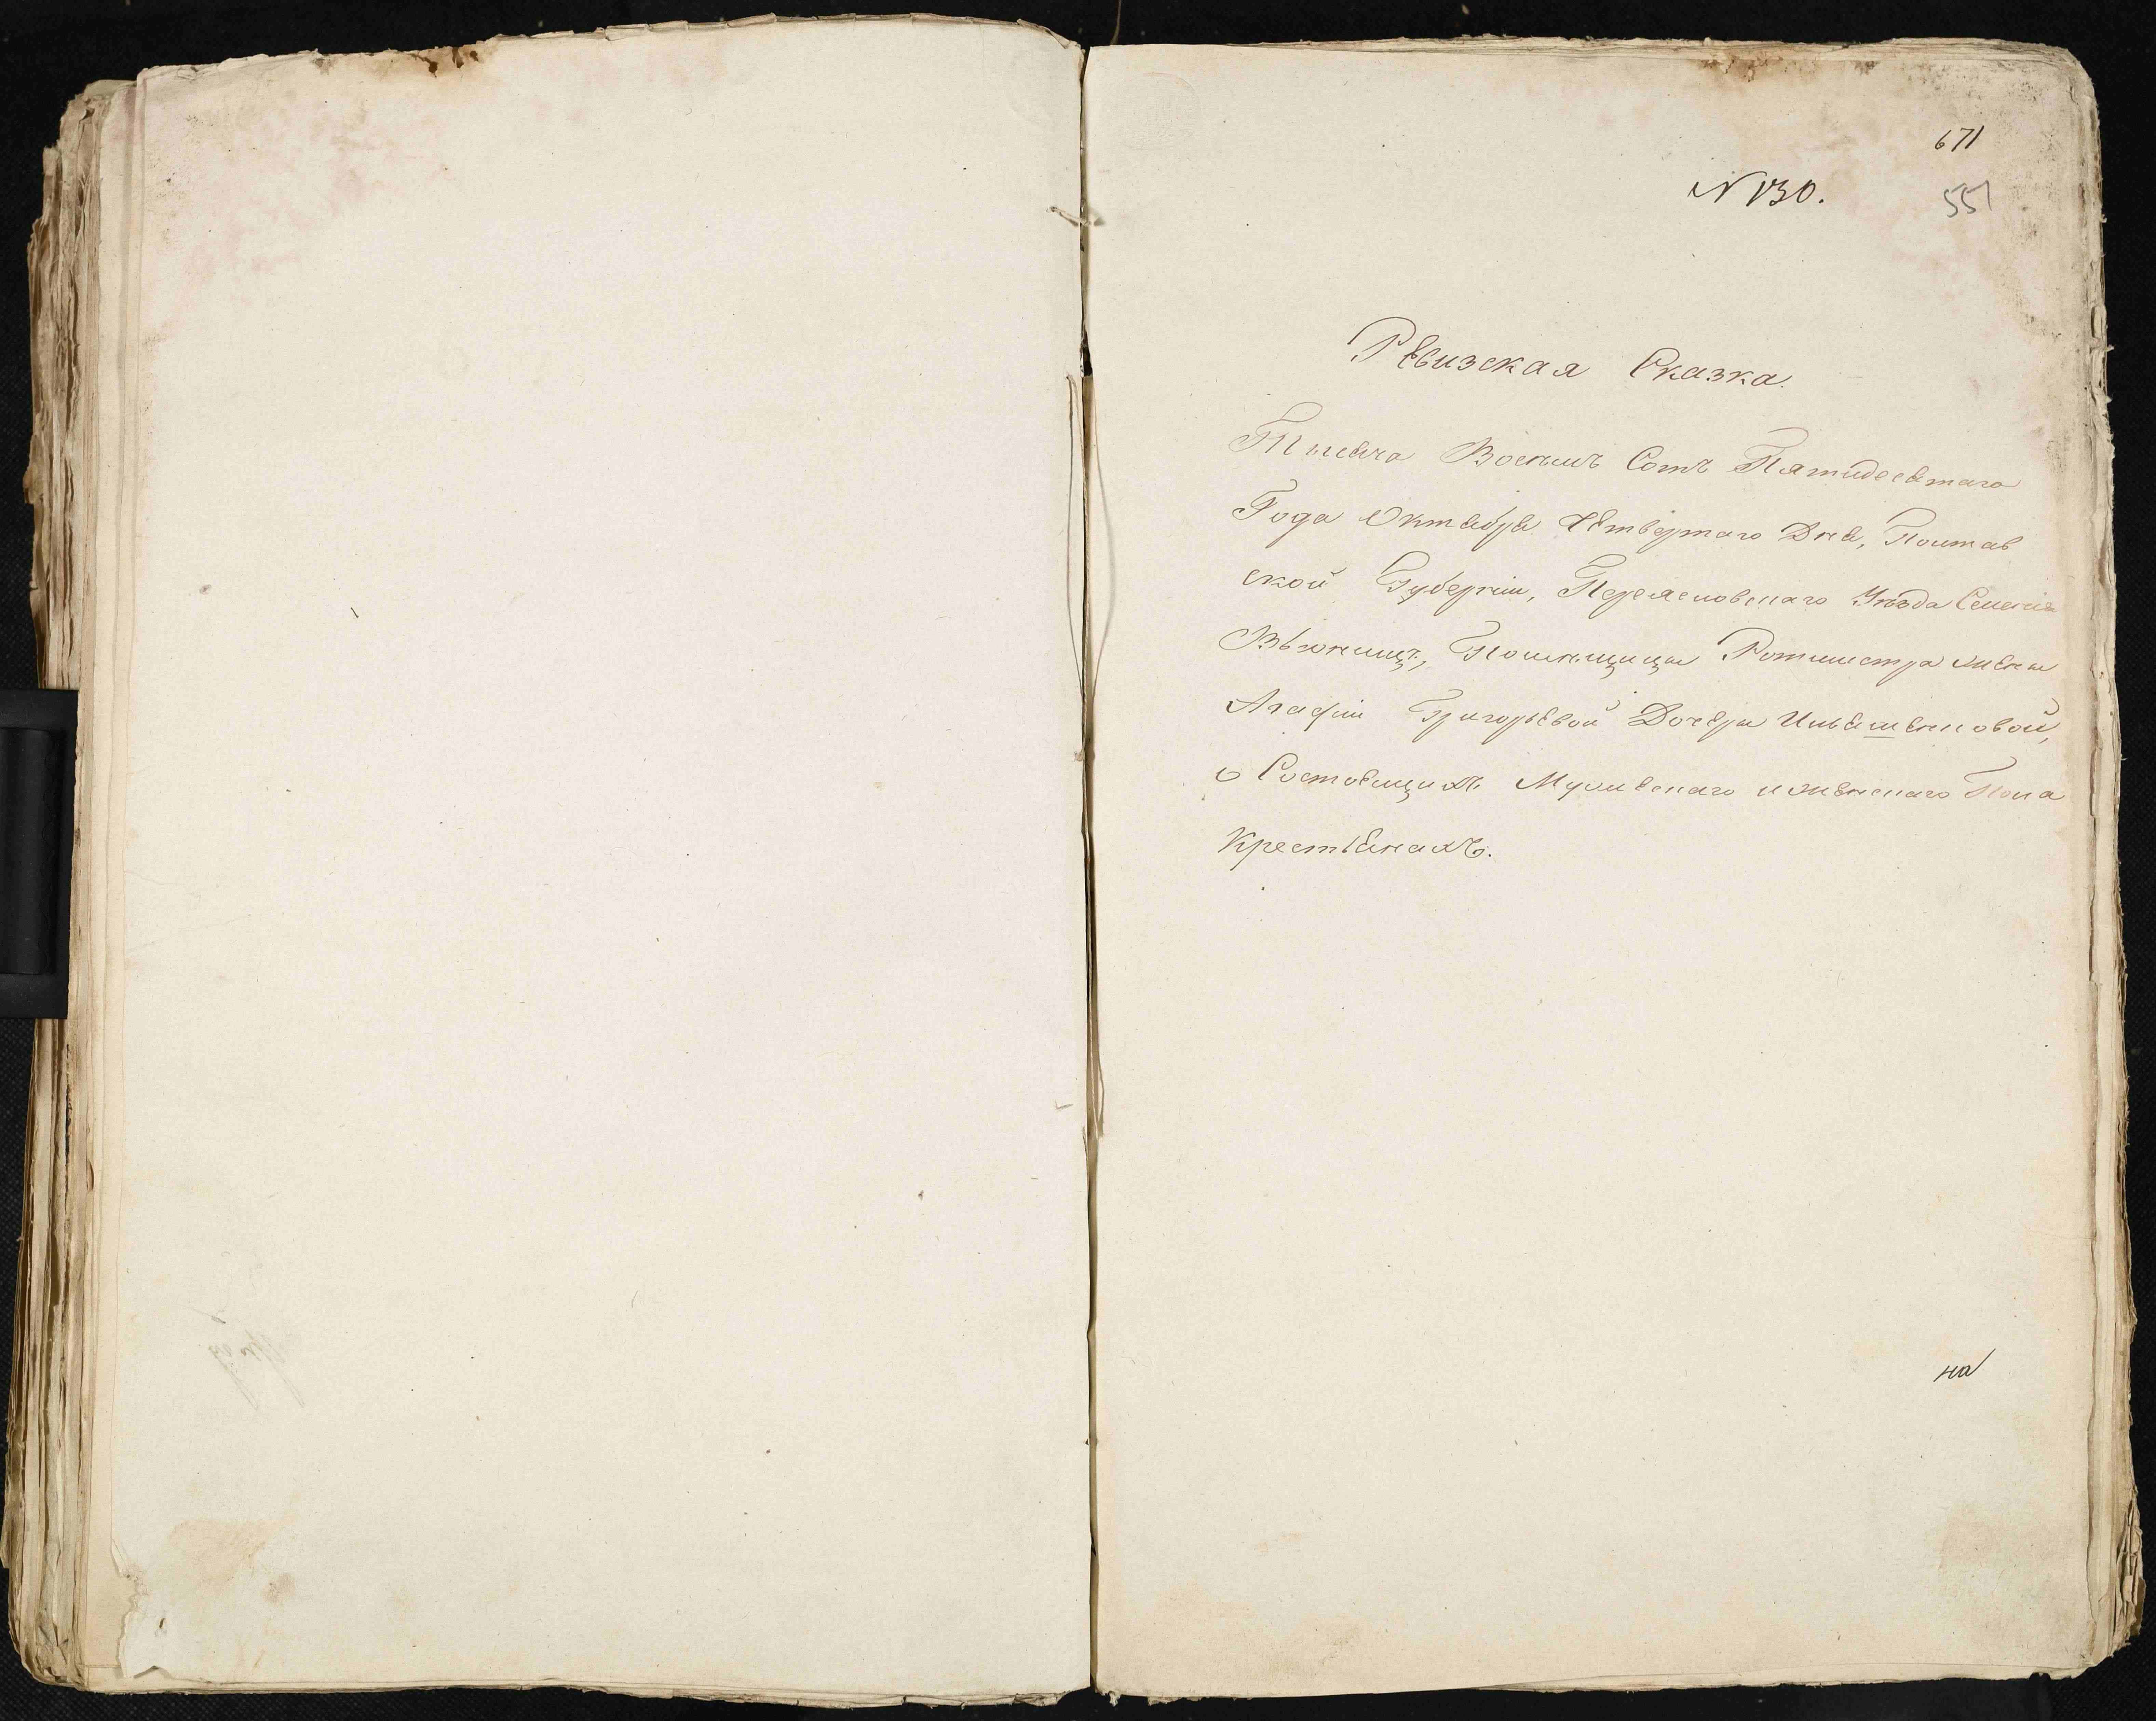 671
N 130.
551
Ревизская Сказка.
Тысяча Восемъ Сотъ Пятидесятаго
Года Октября Четвертаго Дня, Полтав
ской Губерніи, Переясловскаго Уезда Селенія
Вьюнищъ, Помещицы Ротмистра жены
Агафіи Григорьевой Дочери Ильяшенковой,
о Состоящихъ Мужескаго и женскаго Пола
Крестьянахъ.
на